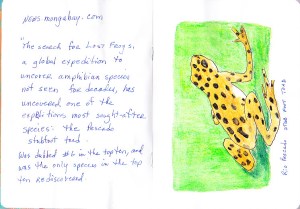 news.mongabay.com
"The search for Lost Frogs,
a global expedition to
uncover amphibian species
not seen for decades, has
uncovered one of the
expditions most sought-after
species: the Rescado
stubfoot toad.
Was dubbed #6 in the top ten, and
was the only species in the top
ten rediscovered.
Rio Pescado stub foot toad